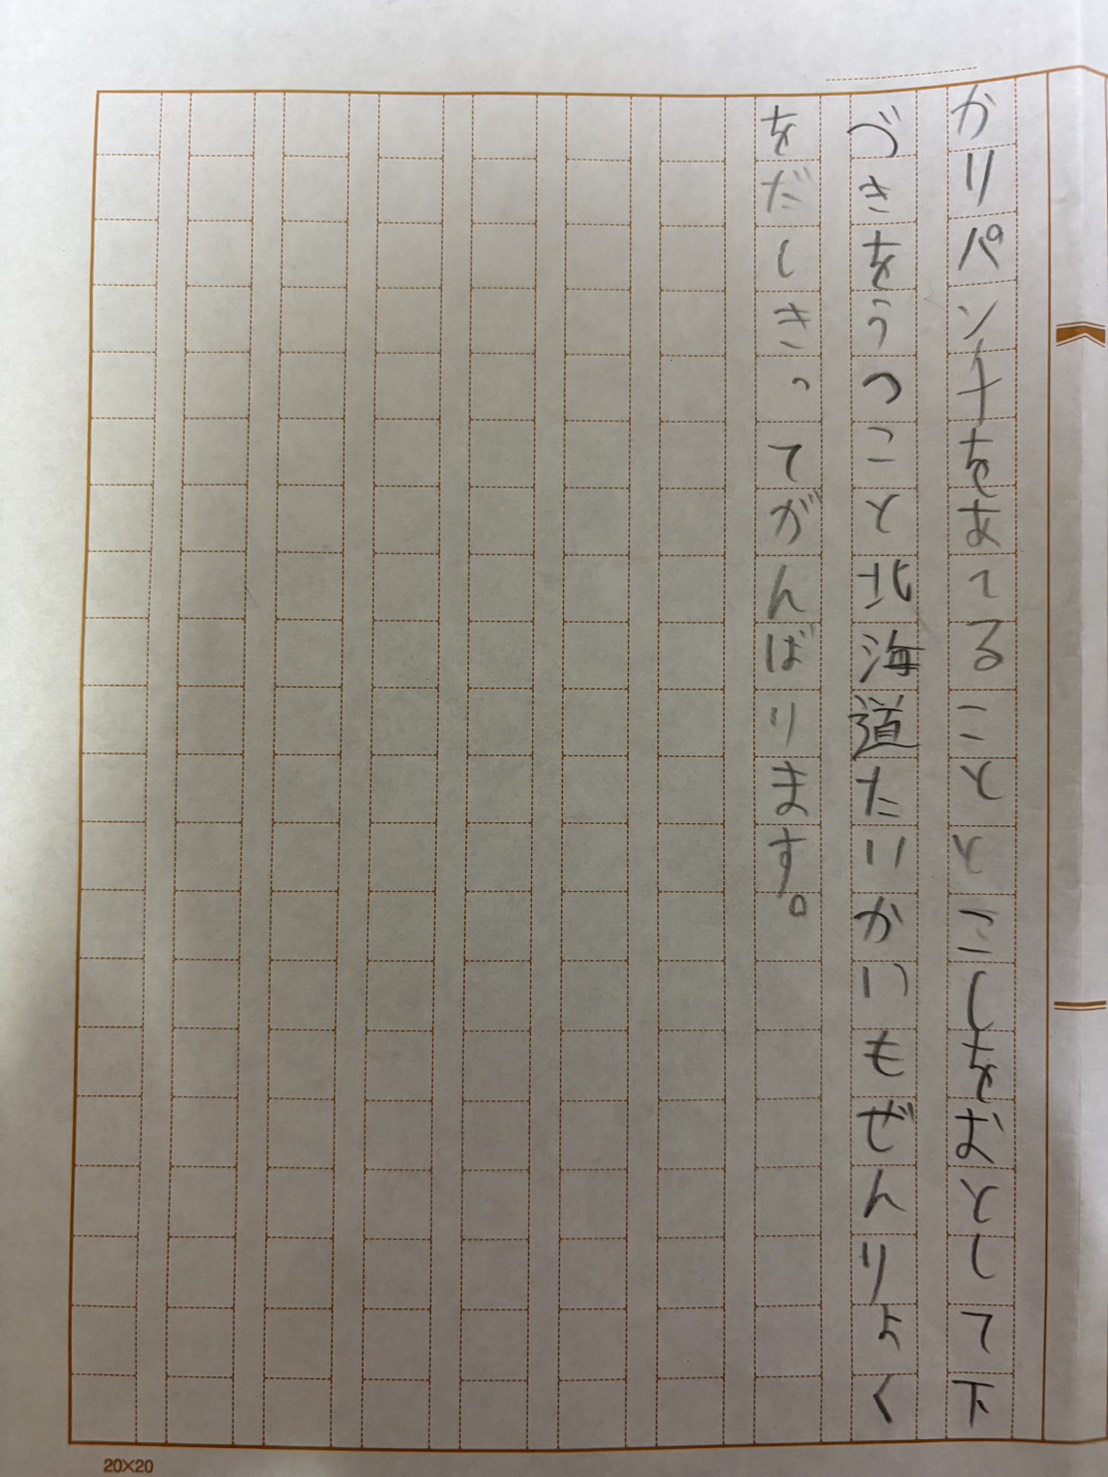 かりパンチをあてることとこしをおとして下
づきをうつこと北海道たいかいもぜんりよく
をだしきってがんばります。
20×20